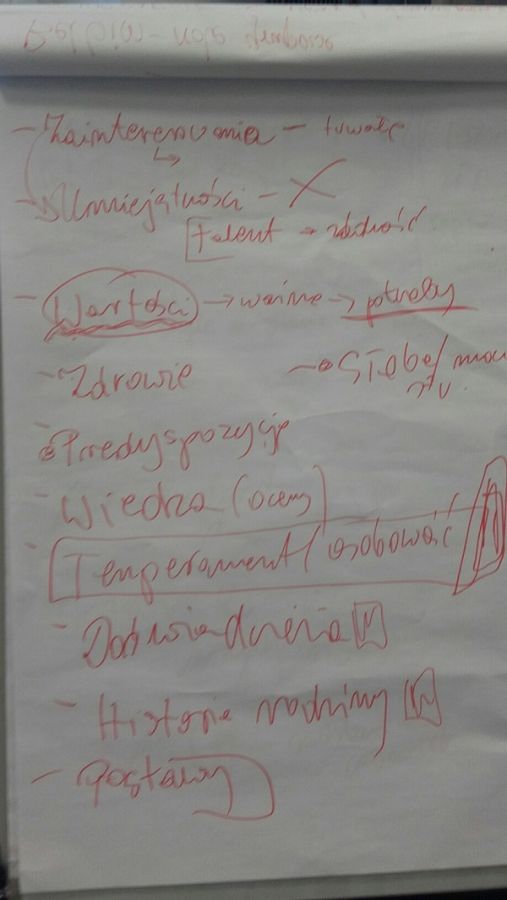 - Zainteresowania - trwałe
↳
- Umiejętności - X
Talent → zdolność
- Wartości → ważne → potrzeby
- Zdrowie → Słabe/moc
- Predyspozycje
- Wiedza (oceny)
- Temperament/osobowość
- Doświadczenia
- Historie rodziny
- Postawy